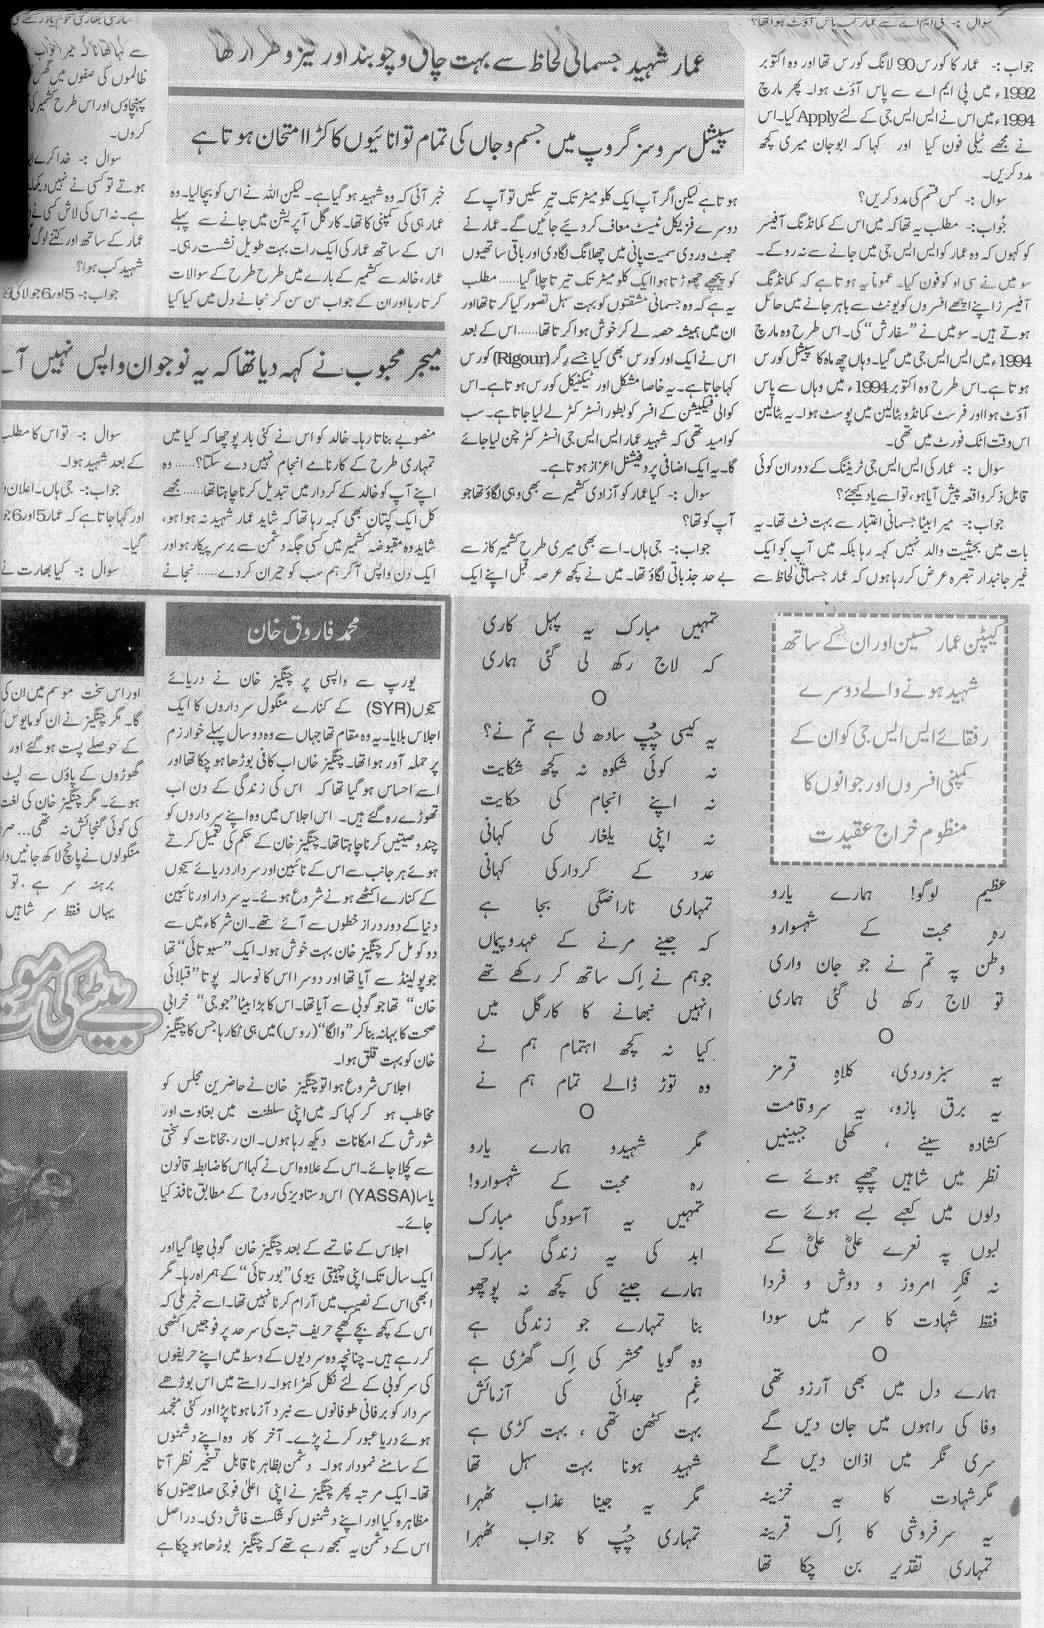 سوال :- پی ایم اے سے عمار کب پاس آؤٹ ہوا تھا؟
جواب :- عمار کا کورس 90 لانگ کورس تھا اور وہ اکتوبر
1992ء میں پی ایم اے سے پاس آؤٹ ہوا۔ پھر مارچ
1994ء میں اس نے ایس ایس جی کے لئے Apply کیا۔ اس
نے مجھے ٹیلی فون کیا اور کہا کہ ابو جان میری کچھ
مدد کریں۔
سوال :- کس قسم کی مدد کریں؟
جواب :- مطلب یہ تھا کہ میں اس کے کمانڈنگ آفیسر
کو کہوں کہ وہ عمار کو ایس ایس جی میں جانے سے نہ روکے۔
سو میں نے سی او کو فون کیا۔ عموماً یہ ہوتا ہے کہ کمانڈنگ
آفیسرز اپنے اچھے افسروں کو یونٹ سے باہر جانے میں حائل
ہوتے ہیں۔ سو میں نے ”سفارش“ کی۔ اس طرح وہ مارچ
1994ء میں ایس ایس جی میں گیا۔ وہاں چھ ماہ کا سپیشل کورس
ہوتا ہے۔ اس طرح وہ اکتوبر 1994ء میں وہاں سے پاس
آؤٹ ہوا اور فرسٹ کمانڈو بٹالین میں پوسٹ ہوا۔ یہ بٹالین
اس وقت اٹک فورٹ میں تھی۔
سوال :- عمار کی ایس ایس جی ٹریننگ کے دوران کوئی
قابل ذکر واقعہ پیش آیا ہو، تو اسے یاد کیجئے؟
جواب :- میرا بیٹا جسمانی اعتبار سے بہت فٹ تھا۔ یہ
بات میں بحیثیت والد نہیں کہہ رہا بلکہ میں آپ کو ایک
غیر جانبدار تبصرہ عرض کر رہا ہوں کہ عمار جسمانی لحاظ سے
عمار شہید جسمانی لحاظ سے بہت چاق و چوبند اور تیز و طرار تھا
سپیشل سروسز گروپ میں جسم و جاں کی تمام توانائیوں کا کڑا امتحان ہوتا ہے
ہوتا ہے لیکن اگر آپ ایک کلومیٹر تک تیر سکیں تو آپ کے
دوسرے فزیکل ٹیسٹ معاف کر دیئے جائیں گے۔ عمار نے
جھٹ وردی سمیت پانی میں چھلانگ لگا دی اور باقی ساتھیوں
کو پیچھے چھوڑتا ہوا ایک کلومیٹر تک تیرتا چلا گیا ..... مطلب
یہ ہے کہ وہ جسمانی مشقتوں کو بہت سہل تصور کیا کرتا تھا اور
ان میں ہمیشہ حصہ لے کر خوش ہوا کرتا تھا ..... اس کے بعد
اس نے ایک اور کورس بھی کیا جسے رگر (Rigour) کورس
کہا جاتا ہے۔ یہ خاصا مشکل اور ٹیکنیکل کورس ہوتا ہے۔ اس
کوالی فیکیشن کے افسر کو بطور انسٹرکٹر لے لیا جاتا ہے۔ سب
کو امید تھی کہ شہید عمار ایس ایس جی انسٹرکٹر چن لیا جائے
گا۔ یہ ایک اضافی پروفیشنل اعزاز ہوتا ہے۔
سوال :- کیا عمار کو آزادی کشمیر سے بھی وہی لگاؤ تھا جو
آپ کو تھا؟
جواب :- جی ہاں۔ اسے بھی میری طرح کشمیر کاز سے
بے حد جذباتی لگاؤ تھا۔ میں نے کچھ عرصہ قبل اپنے ایک
خبر آئی کہ وہ شہید ہو گیا ہے۔ لیکن اللہ نے اس کو بچا لیا۔ وہ
عمار ہی کی کمپنی کا تھا۔ کارگل آپریشن میں جانے سے پہلے
اس کے ساتھ عمار کی ایک رات بہت طویل نشست رہی۔
عمار، خالد سے کشمیر کے بارے میں طرح طرح کے سوالات
کرتا رہا اور ان کے جواب سن سن کر نجانے دل میں کیا کیا
میجر محبوب نے کہہ دیا تھا کہ یہ نوجوان واپس نہیں آ
منصوبے بناتا رہا۔ خالد کو اس نے کئی بار پوچھا کہ کیا میں
تمہاری طرح کے کارنامے انجام نہیں دے سکتا؟ ..... وہ
اپنے آپ کو خالد کے کردار میں تبدیل کرنا چاہتا تھا ..... مجھے
کل ایک کپتان بھی کہہ رہا تھا کہ شاید عمار شہید نہ ہوا ہو،
شاید وہ مقبوضہ کشمیر میں کسی جگہ دشمن سے برسر پیکار ہو اور
ایک دن واپس آ کر ہم سب کو حیران کر دے ..... نجانے
سے کہا تھا نا کہ میرا خواب
ظالموں کی صفوں میں گھس
پہنچاؤں اور اس طرح کشمیر کی
کروں۔
سوال :- خدا کرے
ہوتے تو کسی نے نہیں دیکھا
ہے۔ نہ اس کی لاش کسی نے
عمار کے ساتھ اور کتنے لوگ
شہید کب ہوا؟
جواب :- 5 اور 6 جولائی
سوال :- تو اس کا مطلب
کے بعد شہید ہوا۔
جواب :- جی ہاں۔ اعلان
اور کہا جاتا ہے کہ عمار 5 اور 6
گیا۔
سوال :- کیا بھارت نے
کیپٹن عمار حسین اور ان کے ساتھ
شہید ہونے والے دوسرے
رفقائے ایس ایس جی کو ان کے
کمپنی افسروں اور جوانوں کا
منظوم خراج عقیدت
عظیم لوگو! ہمارے یارو
رہِ محبت کے شہسوارو
وطن پہ تم نے جو جان واری
تو لاج رکھ لی گئی ہماری
O
یہ سبز وردی، کلاہِ قرمز
یہ برق بازو، یہ سرو قامت
کشادہ سینے ، کھلی جبینیں
نظر میں شاہیں چھپے ہوئے سے
دلوں میں کعبے بسے ہوئے سے
لبوں پہ نعرے علیؓ علیؓ کے
نہ فکرِ امروز و دوش و فردا
فقط شہادت کا سر میں سودا
O
ہمارے دل میں بھی آرزو تھی
وفا کی راہوں میں جان دیں گے
سری نگر میں اذان دیں گے
مگر شہادت کا یہ خزینہ
یہ سرفروشی کا اِک قرینہ
تمہاری تقدیر بن چکا تھا
تمہیں مبارک یہ پہل کاری
کہ لاج رکھ لی گئی ہماری
O
یہ کیسی چُپ سادھ لی ہے تم نے؟
نہ کوئی شکوہ نہ کچھ شکایت
نہ اپنے انجام کی حکایت
نہ اپنی یلغار کی کہانی
عدد کے کردار کی کہانی
تمہاری ناراضگی بجا ہے
کہ جینے مرنے کے عہد و پیماں
جو ہم نے اِک ساتھ کر رکھے تھے
انہیں نبھانے کا کارگل میں
کیا نہ کچھ اہتمام ہم نے
وہ توڑ ڈالے تمام ہم نے
O
مگر شہیدو ہمارے یارو
رہ محبت کے شہسوارو!
تمہیں یہ آسودگی مبارک
ابد کی یہ زندگی مبارک
ہمارے جینے کی کچھ نہ پوچھو
بنا تمہارے جو زندگی ہے
وہ گویا محشر کی اِک گھڑی ہے
غم جدائی کی آزمائش
بہت کٹھن تھی ، بہت کڑی ہے
شہید ہونا بہت سہل تھا
مگر یہ جینا عذاب ٹھہرا
تمہاری چُپ کا جواب ٹھہرا
محمد فاروق خان
یورپ سے واپسی پر چنگیز خان نے دریائے
سیحوں (SYR) کے کنارے منگول سرداروں کا ایک
اجلاس بلایا۔ یہ وہ مقام تھا جہاں سے وہ دو سال پہلے خوارزم
پر حملہ آور ہوا تھا۔ چنگیز خان اب کافی بوڑھا ہو چکا تھا اور
اسے احساس ہو گیا تھا کہ اس کی زندگی کے دن اب
تھوڑے رہ گئے ہیں۔ اس اجلاس میں وہ اپنے سرداروں کو
چند وصیتیں کرنا چاہتا تھا۔ چنگیز خان کے حکم کی تعمیل کرتے
ہوئے ہر جانب سے اس کے نائبین اور سردار دریائے سیحوں
کے کنارے اکٹھے ہونے شروع ہوئے۔ یہ سردار اور نائبین
دنیا کے دور دراز خطوں سے آئے تھے۔ ان شرکاء میں سے
دو کو مل کر چنگیز خان بہت خوش ہوا۔ ایک ”سبوتائی“ تھا
جو پولینڈ سے آیا تھا اور دوسرا اس کا نو سالہ پوتا ”قبلائی
خان“ تھا جو گوبی سے آیا تھا۔ اس کا بڑا بیٹا ”جوجی“ خرابی
صحت کا بہانہ بنا کر ”والگا“ (روس) میں ہی ٹکا رہا جس کا چنگیز
خان کو بہت قلق ہوا۔
اجلاس شروع ہوا تو چنگیز خان نے حاضرین مجلس کو
مخاطب ہو کر کہا کہ میں اپنی سلطنت میں بغاوت اور
شورش کے امکانات دیکھ رہا ہوں۔ ان رجحانات کو سختی
سے کچلا جائے۔ اس کے علاوہ اس نے کہا اس کا ضابطہ قانون
یاسا (YASSA) اس دستاویز کی روح کے مطابق نافذ کیا
جائے۔
اجلاس کے خاتمے کے بعد چنگیز خان گوبی چلا گیا اور
ایک سال تک اپنی چہیتی بیوی ”بورتائی“ کے ہمراہ رہا۔ مگر
ابھی اس کے نصیب میں آرام کرنا نہیں تھا۔ اسے خبر ملی کہ
اس کے کچھ بچے کھچے حریف تبت کی سرحد پر فوجیں اکٹھی
کر رہے ہیں۔ چنانچہ وہ سردیوں کے وسط میں اپنے حریفوں
کی سرکوبی کے لئے نکل کھڑا ہوا۔ راستے میں اس بوڑھے
سردار کو برفانی طوفانوں سے نبرد آزما ہونا پڑا اور کئی منجمد
ہوئے دریا عبور کرنے پڑے۔ آخر کار وہ اپنے دشمنوں
کے سامنے نمودار ہوا۔ دشمن بظاہر ناقابل تسخیر نظر آتا
تھا۔ ایک مرتبہ پھر چنگیز نے اپنی اعلیٰ فوجی صلاحیتوں کا
مظاہرہ کیا اور اپنے دشمنوں کو شکست فاش دی۔ دراصل
اس کے دشمن یہ سمجھ رہے تھے کہ چنگیز بوڑھا ہو چکا ہے
اور اس سخت موسم میں ان کی
گا۔ مگر چنگیز نے ان کو مایوس
کے حوصلے پست ہو گئے اور
گھوڑوں کے پاؤں سے لپٹ
ہوئے۔ مگر چنگیز خان کی لغت
کی کوئی گنجائش نہ تھی ...
منگولوں نے پانچ لاکھ جانیں
برہنہ سر ہے، تو
یہاں فقط سر شاہیں
بیٹے کی